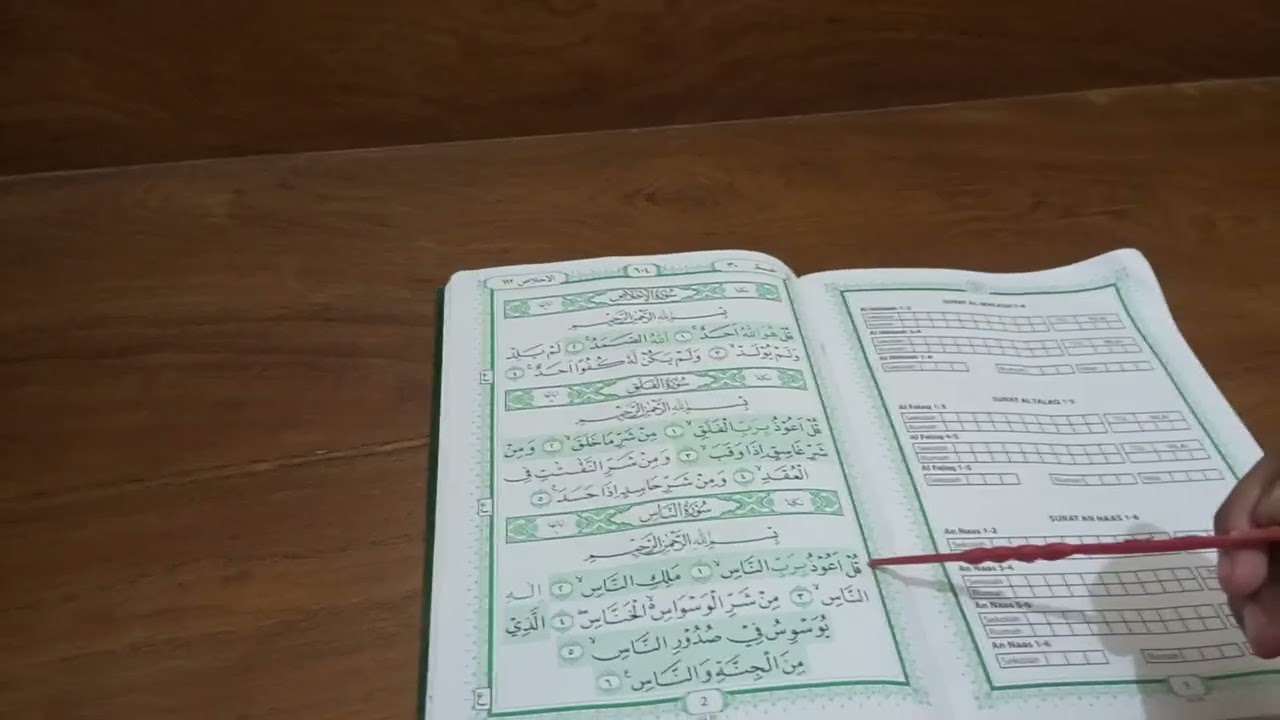 الاخلاص ١١٢
٦٠٤
٣٠
سُوْرَةُ الْاِخْلَاصِ
بِسْمِ اللّٰهِ الرَّحْمٰنِ الرَّحِيْمِ
قُلْ هُوَ اللّٰهُ اَحَدٌۚ ١ اَللّٰهُ الصَّمَدُۚ ٢ لَمْ يَلِدْ
وَلَمْ يُوْلَدْۙ ٣ وَلَمْ يَكُنْ لَّهٗ كُفُوًا اَحَدٌ ࣖ ٤
سُوْرَةُ الْفَلَقِ
بِسْمِ اللّٰهِ الرَّحْمٰنِ الرَّحِيْمِ
قُلْ اَعُوْذُ بِرَبِّ الْفَلَقِۙ ١ مِنْ شَرِّ مَا خَلَقَۙ ٢ وَمِنْ
شَرِّ غَاسِقٍ اِذَا وَقَبَۙ ٣ وَمِنْ شَرِّ النَّفّٰثٰتِ فِى
الْعُقَدِۙ ٤ وَمِنْ شَرِّ حَاسِدٍ اِذَا حَسَدَ ࣖ ٥
سُوْرَةُ النَّاسِ
بِسْمِ اللّٰهِ الرَّحْمٰنِ الرَّحِيْمِ
قُلْ اَعُوْذُ بِرَبِّ النَّاسِۙ ١ مَلِكِ النَّاسِۙ ٢ اِلٰهِ
النَّاسِۙ ٣ مِنْ شَرِّ الْوَسْوَاسِ ەۙ الْخَنَّاسِۖ ٤ الَّذِيْ
يُوَسْوِسُ فِيْ صُدُوْرِ النَّاسِۙ ٥
مِنَ الْجِنَّةِ وَالنَّاسِ ࣖ ٦
2
SURAT AL IKHLASH 1-4
Al Ikhlash 1-2
SURAT AL FALAQ 1-5
Al Falaq 1-3
Sekolah
Rumah
Al Falaq 4-5
Sekolah
Rumah
Al Falaq 1-5
Sekolah
SURAT AN NAAS 1-6
An Naas 1-2
Sekolah
An Naas 3-4
Sekolah
Rumah
An Naas 5-6
Sekolah
Rumah
An Naas 1-6
Sekolah
Rumah
3